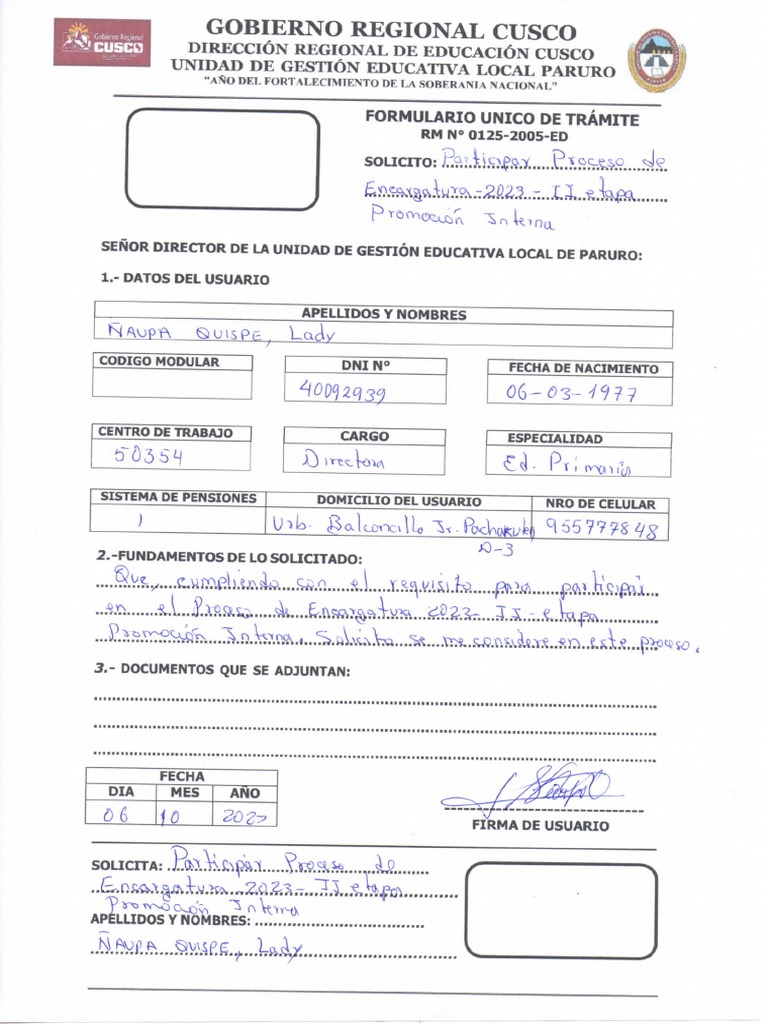 Gobierno Regional
CUSCO
GOBIERNO REGIONAL CUSCO
DIRECCIÓN REGIONAL DE EDUCACIÓN CUSCO
UNIDAD DE GESTIÓN EDUCATIVA LOCAL PARURO
"AÑO DEL FORTALECIMIENTO DE LA SOBERANIA NACIONAL"
FORMULARIO UNICO DE TRÁMITE
RM N° 0125-2005-ED
SOLICITO: Participar Proceso de
Encargatura-2023-II etapa
Promoción Interna
SEÑOR DIRECTOR DE LA UNIDAD DE GESTIÓN EDUCATIVA LOCAL DE PARURO:
1.- DATOS DEL USUARIO
APELLIDOS Y NOMBRES
ÑAUPA QUISPE, Lady
CODIGO MODULAR DNI N° FECHA DE NACIMIENTO
40092939 06-03-1977
CENTRO DE TRABAJO CARGO ESPECIALIDAD
50354 Directora Ed. Primaria
SISTEMA DE PENSIONES DOMICILIO DEL USUARIO NRO DE CELULAR
Urb. Balconcillo Jr. Pachakuteq 955777848
D-3
2.-FUNDAMENTOS DE LO SOLICITADO:
Que, cumpliendo con el requisito para participar
en el Proceso de Encargatura 2023-II-etapa
Promoción Interna. Solicito se me considere en este proceso.
3.- DOCUMENTOS QUE SE ADJUNTAN:
FECHA
DIA MES AÑO
06 10 2022
FIRMA DE USUARIO
SOLICITA: Participar Proceso de
Encargatura 2023-II etapa
Promoción Interna
APELLIDOS Y NOMBRES:
ÑAUPA QUISPE, Lady